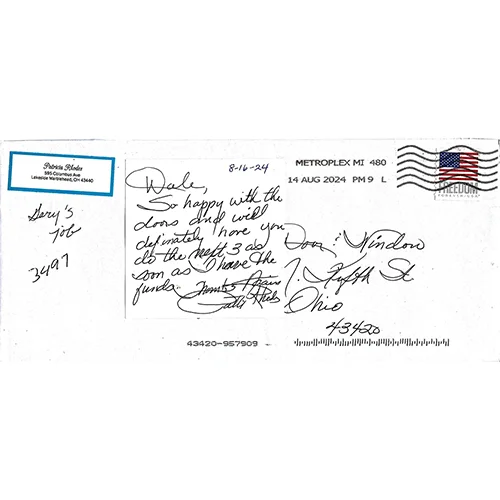 Patricia Rhodes
595 Columbus Ave
Lakeside Marblehead, OH 43440
Gary's
Job
3497
8-16-24
Dale,
So happy with the
doors and will
definately have you
do the next 3 as
soon as I have the
funds. Thanks Again
METROPLEX MI 480
14 AUG 2024 PM 9 L
FREEDOM
Door & Window
Fifth St
Ohio
43420
43420-957909